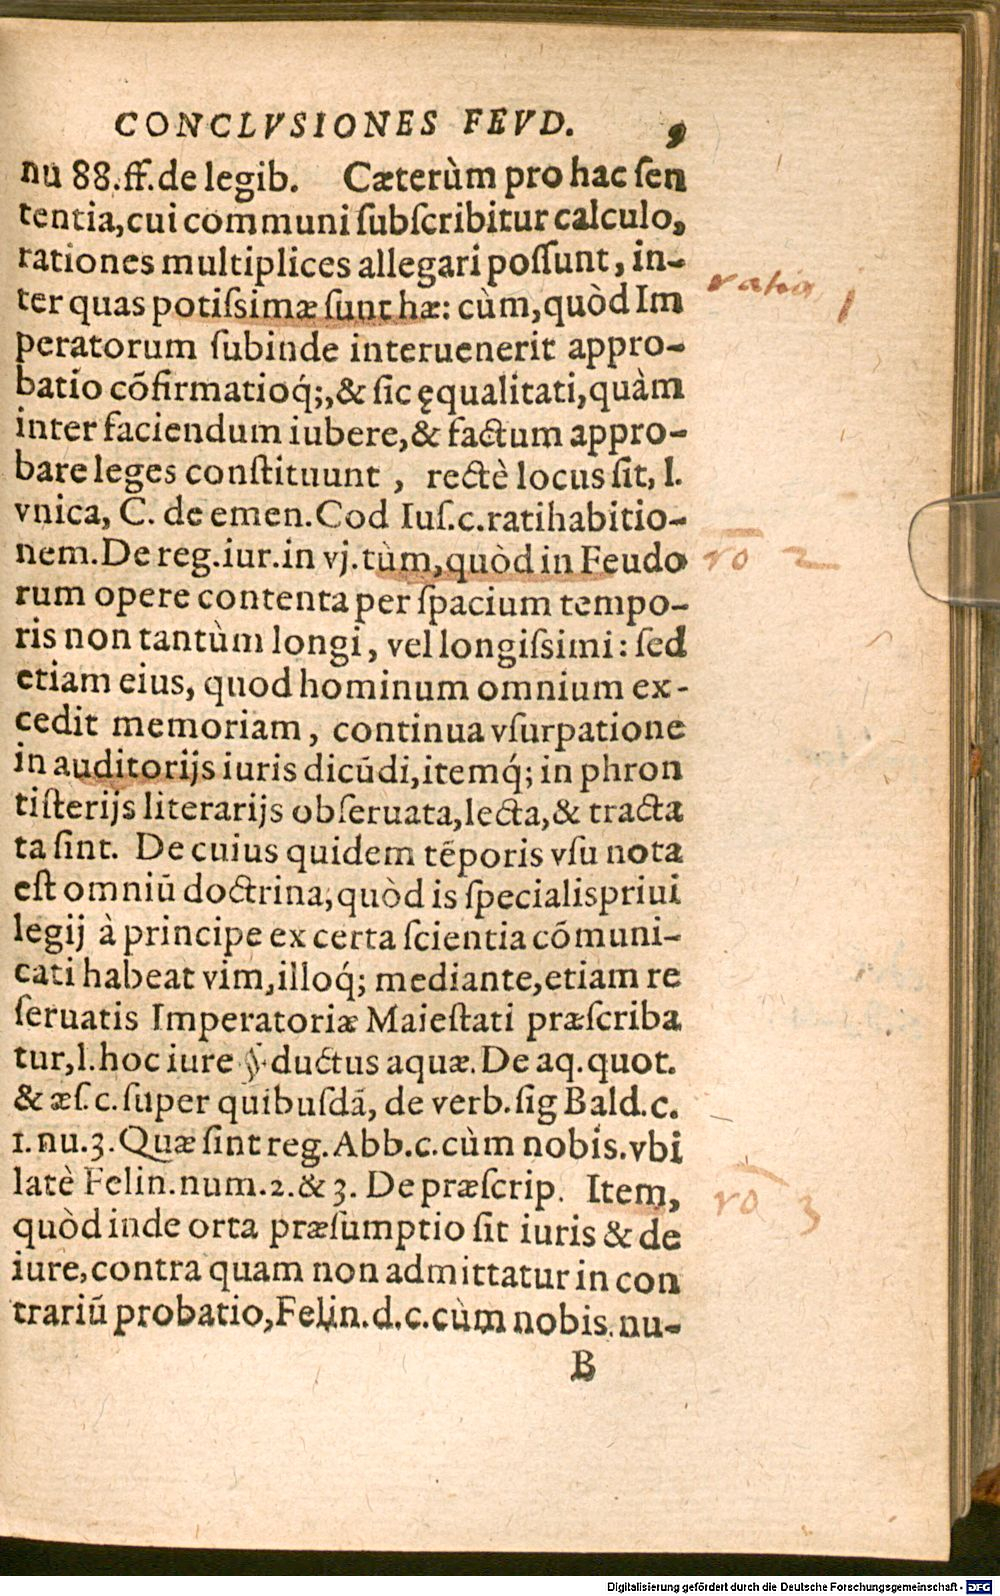 CONCLVSIONES FEVD. 9
nu 88.ff.de legib. Cæterùm pro hac sen
tentia,cui communi subscribitur calculo,
rationes multiplices allegari possunt, in-
ter quas potissimæ sunt hæ: cùm,quòd Im
peratorum subinde interuenerit appro-
batio cõfirmatioq́;,& sic ęqualitati,quàm
inter faciendum iubere,& factum appro-
bare leges constituunt , rectè locus sit, l.
vnica, C. de emen.Cod Ius.c.ratihabitio-
nem.De reg.iur.in vj.tùm,quòd in Feudo
rum opere contenta per spacium tempo-
ris non tantùm longi, vel longissimi: sed
etiam eius, quod hominum omnium ex-
cedit memoriam, continua vsurpatione
in auditorijs iuris dicũdi,itemq́; in phron
tisterijs literarijs obseruata,lecta,& tracta
ta sint. De cuius quidem tẽporis vsu nota
est omniũ doctrina,quòd is specialispriui
legij à principe ex certa scientia cõmuni-
cati habeat vim,illoq́; mediante,etiam re
seruatis Imperatoriæ Maiestati præscriba
tur,l.hoc iure §. ductus aquæ.De aq.quot.
& æs.c.super quibusdã, de verb.sig Bald.c.
1.nu.3.Quæ sint reg.Abb.c.cùm nobis.vbi
latè Felin.num.2.& 3. De præscrip. Item,
quòd inde orta præsumptio sit iuris & de
iure,contra quam non admittatur in con
trariũ probatio,Felin.d.c.cùm nobis.nu-
B
ratio 1
ro 2
ro 3
Digitalisierung gefördert durch die Deutsche Forschungsgemeinschaft - DFG